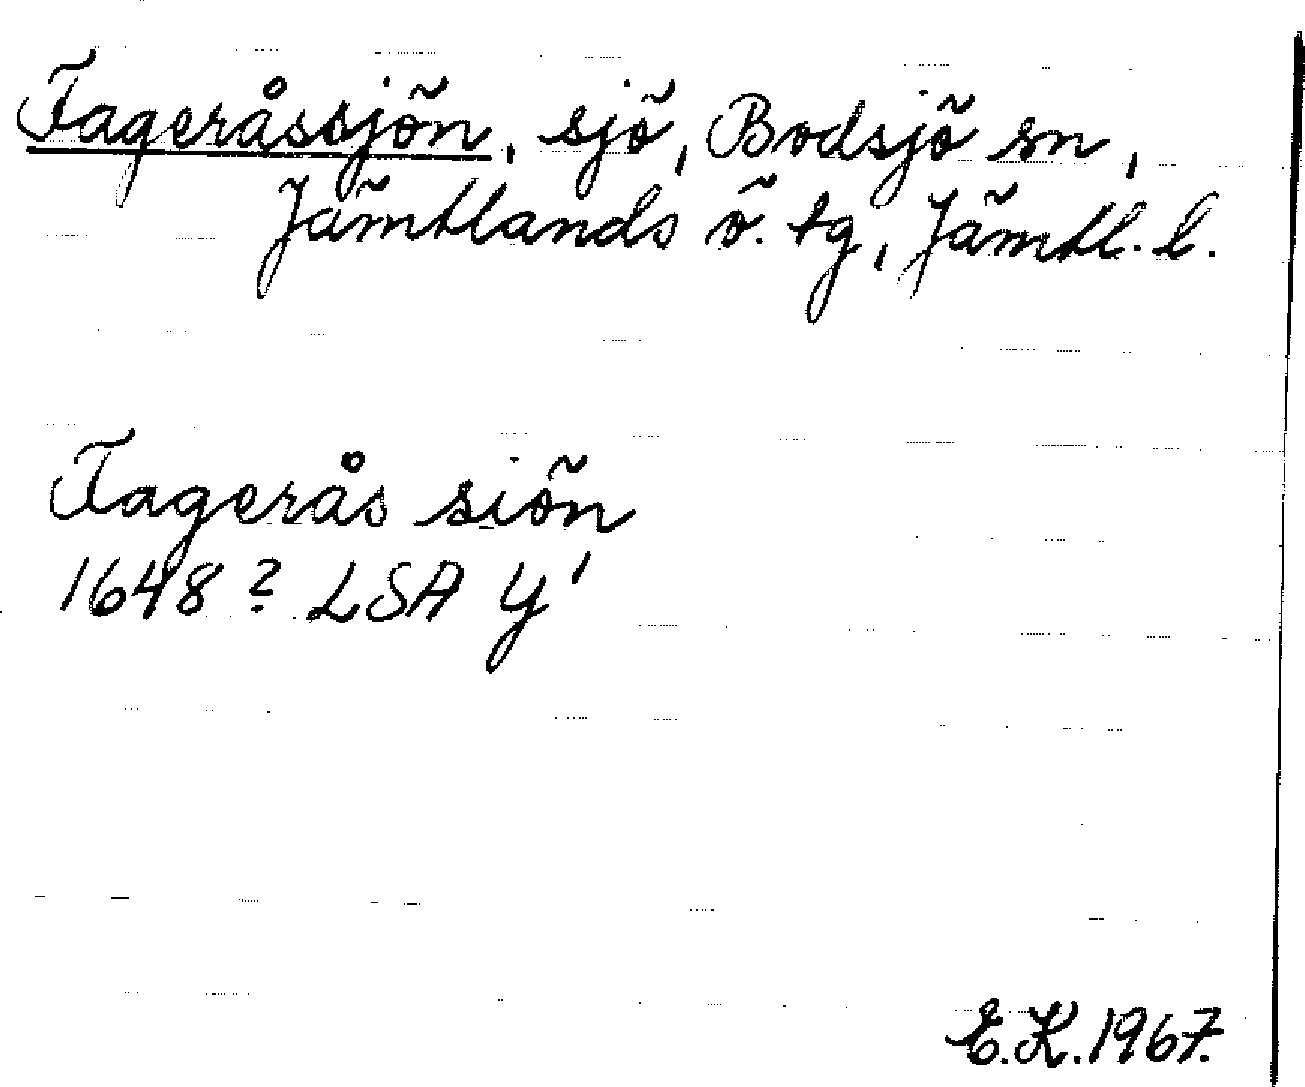 Fageråssjön, sjö, Bodsjö sn,
Jämtlands ö. tg, Jämtl. l.
Fagerås siön
1648? LSA Y'
E.K.1967.